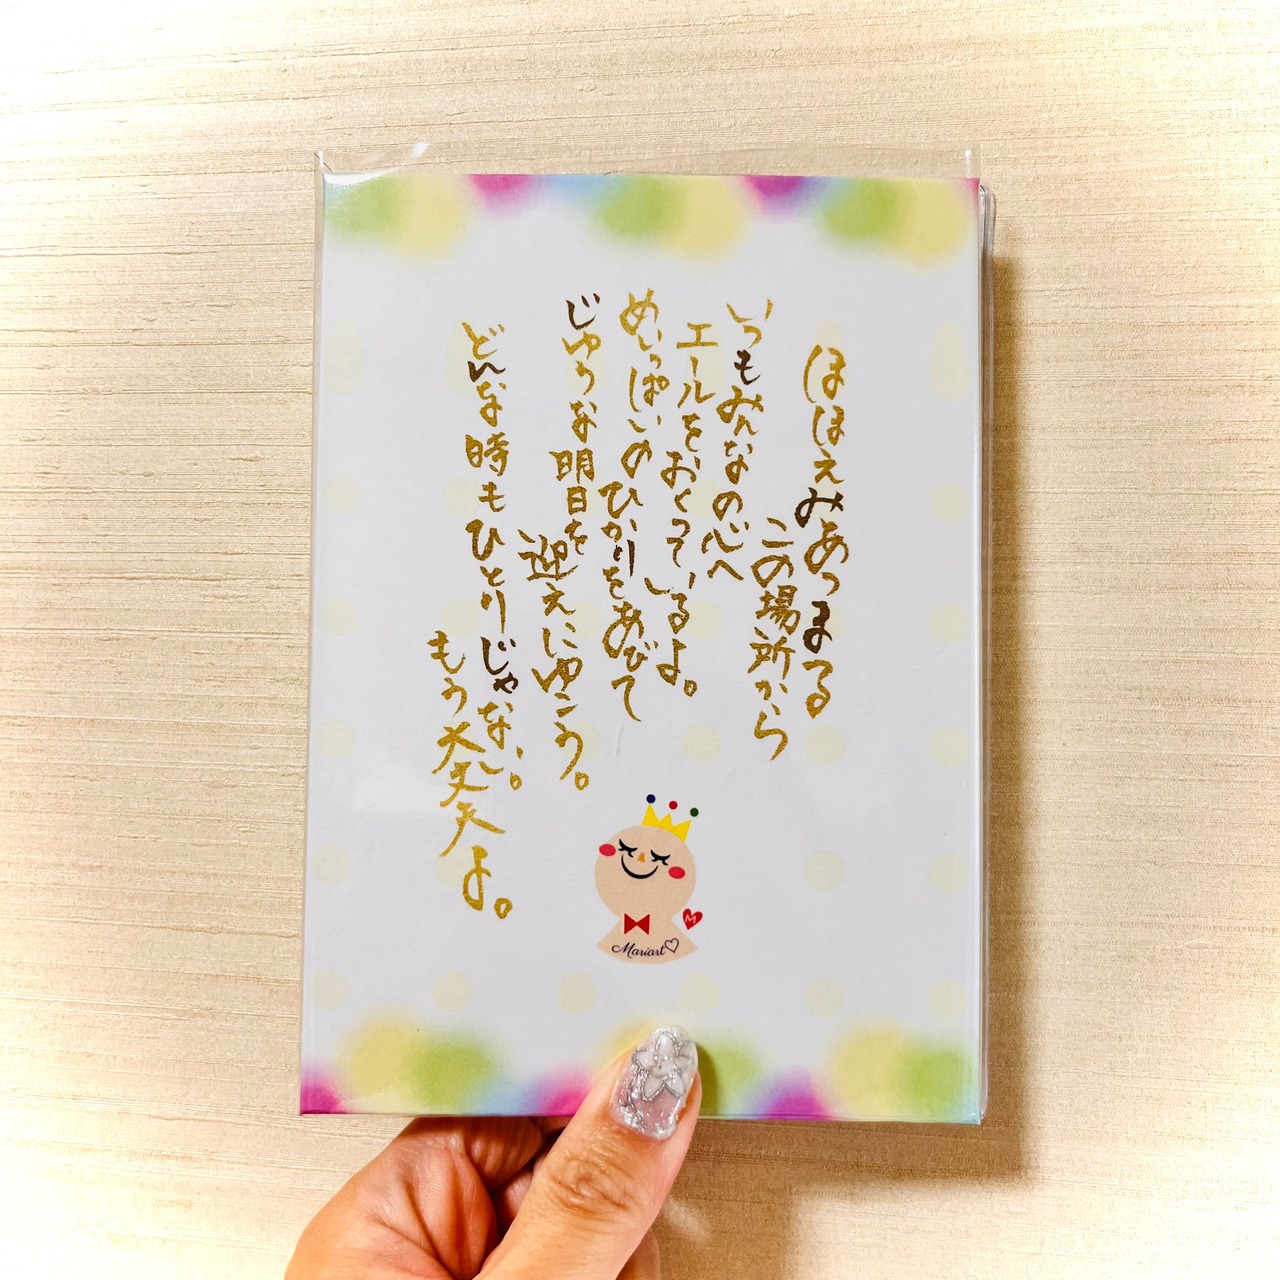 ほほえみあつまる
この場所から
いつもみんなの心へ
エールをおくっているよ。
めいっぱいのひかりをあびて
じゆうな明日を
迎えにゆこう。
どんな時もひとりじゃない。
もう大丈夫よ。
Mariart♡
M